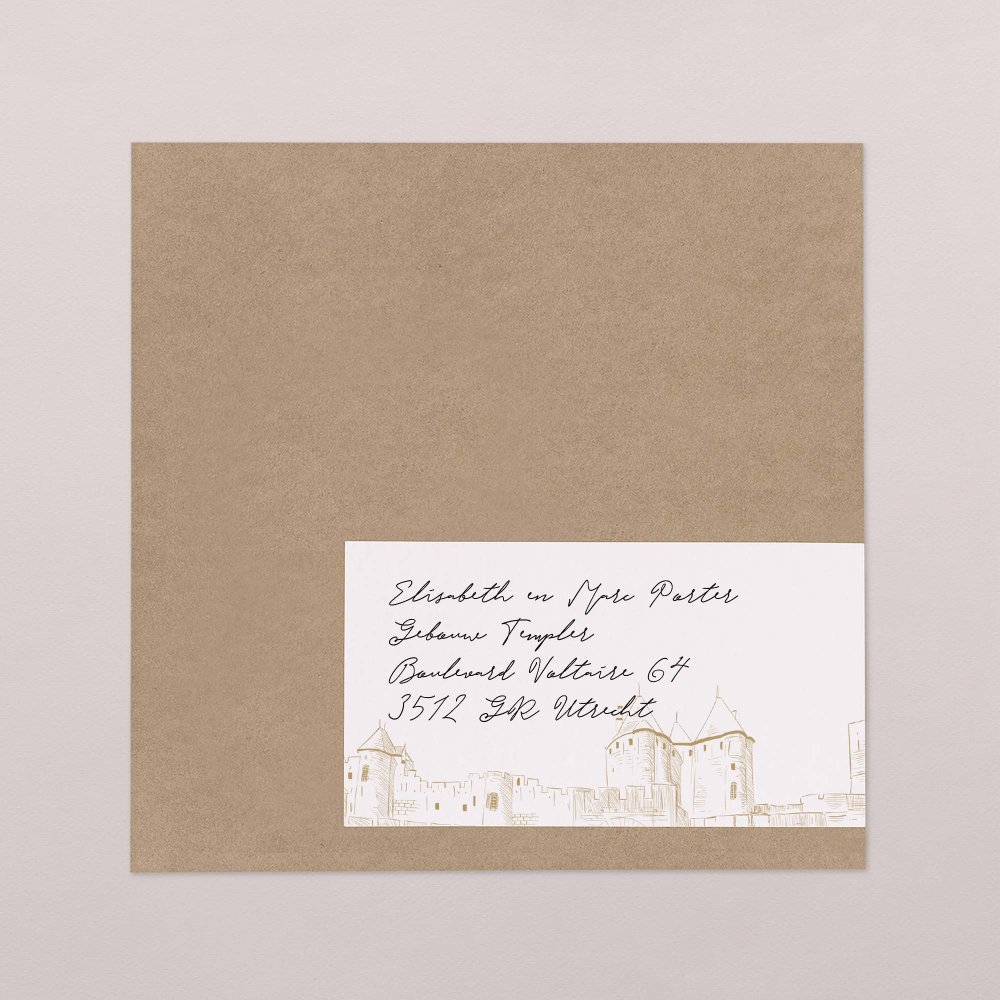 Elisabeth en Marc Porter
Gebouw Templer
Boulevard Voltaire 64
3512 GR Utrecht